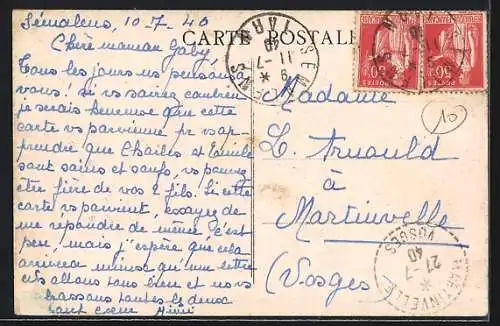 Sémalens, 10-7-40
Chère maman Gaby,
Tous les jours ns pensons à
vous! Si vs saviez combien
je serais heureuse que cette
carte vs parvienne pr vs ap-
prendre que Charles et Emile
sont sains et saufs, vs pouvez
être fière de vos 2 fils. Si cette
carte vs parvient, essayez de
me répondre de même, c'est
peu, mais j'espère que cela
arrivera même qu'une lettre
ns allons tous bien et ns vs
embrassons toutes les deux
tout cœur Mimi
CARTE POSTALE
SEMALENS
11-7
40
TARN
POSTES
50c
POSTES
50c
10
Madame
L. Arnould
à
Martinvelle
(Vosges)
MARTINVELLE
27-7
40
VOSGES